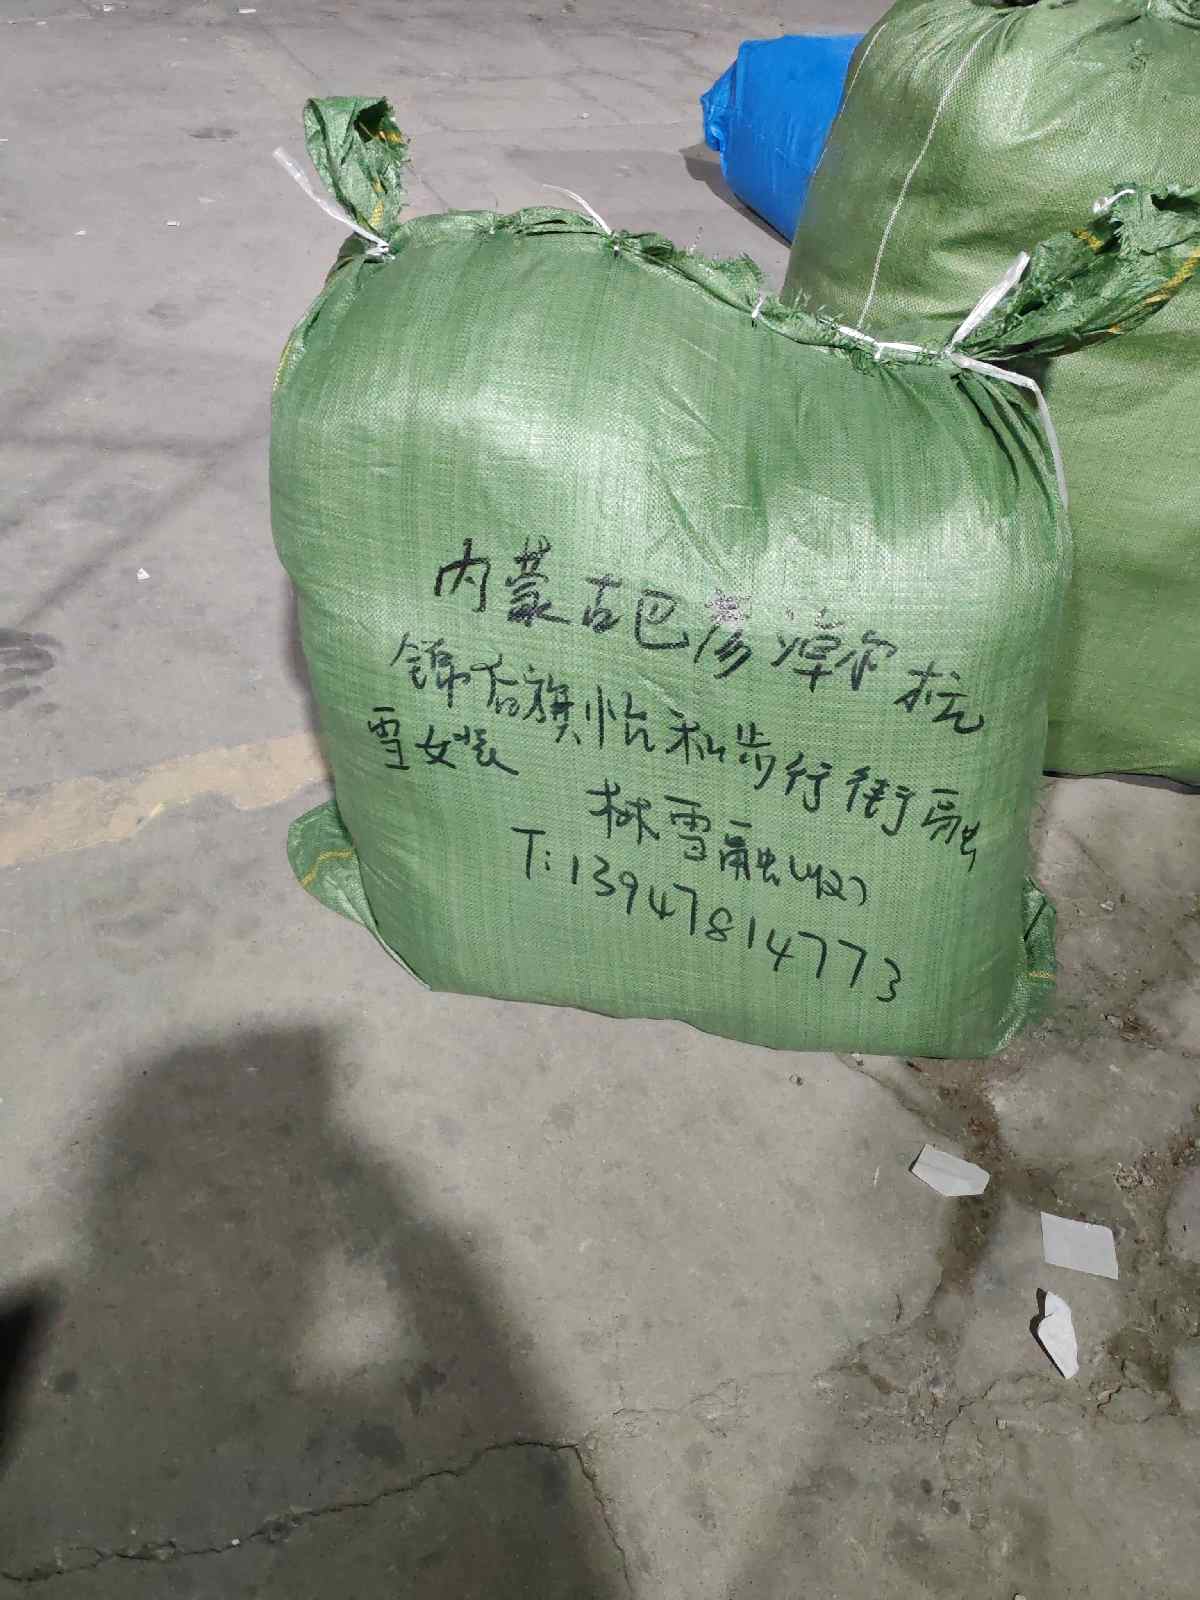 内蒙古巴彦淖尔杭
锦后旗怡和步行街融
雪女装
林雪融(收)
T:13947814773